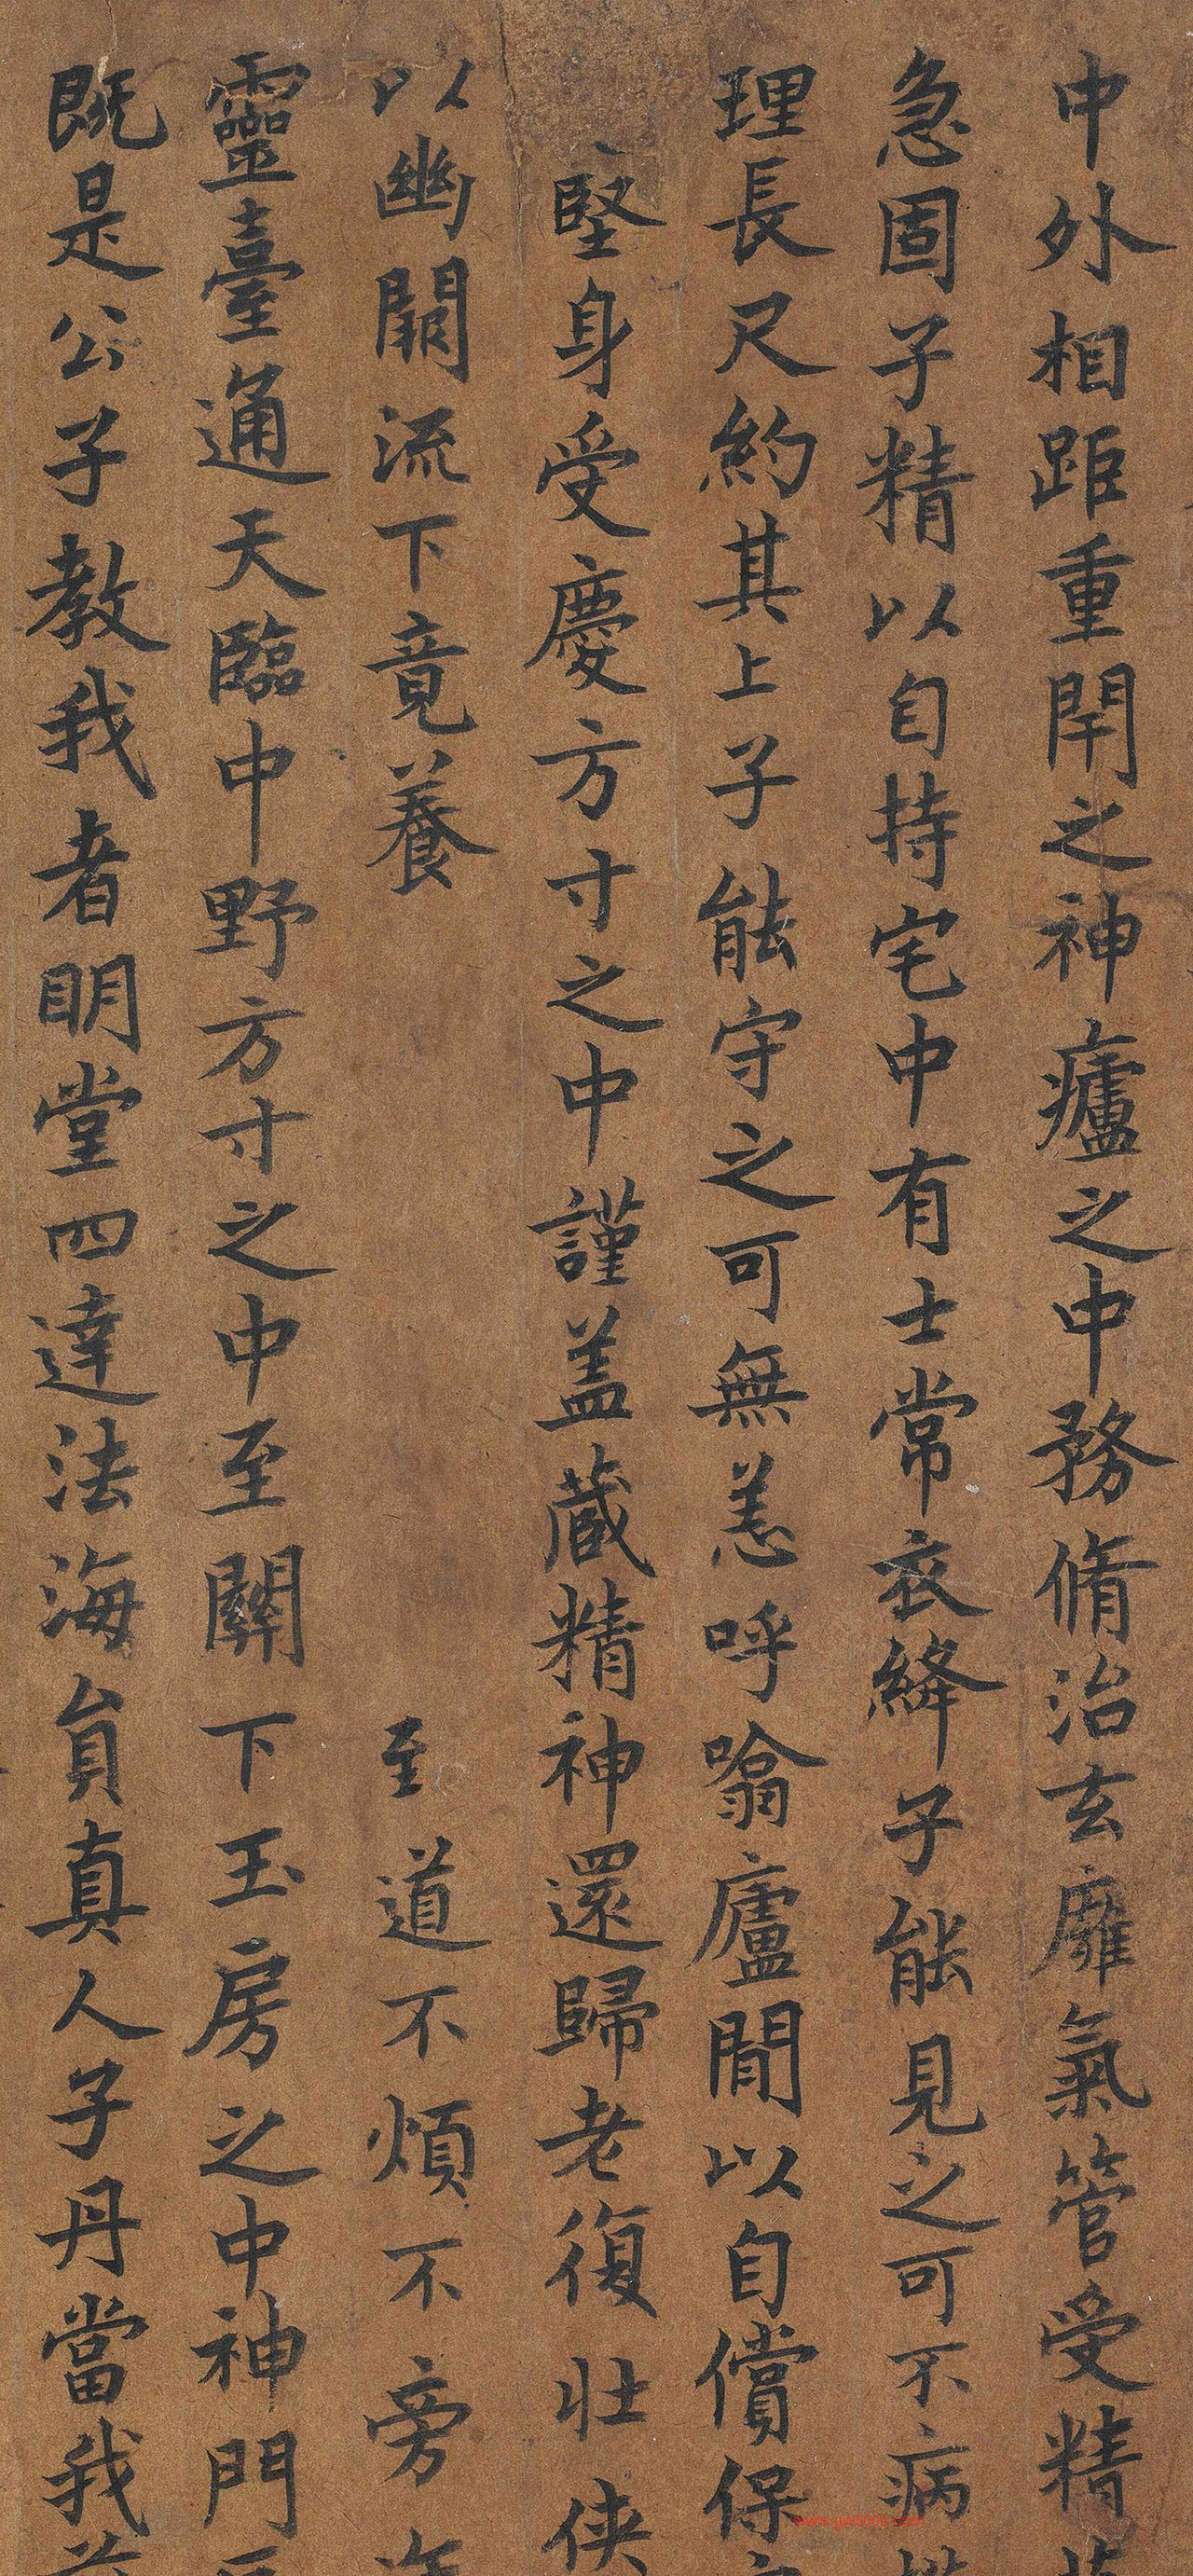 中外相距重閈之神癰之中務脩治玄癰氣管受精
急固子精以自持宅中有士常衣絳子能見之可不病
理長尺約其上子能守之可無恙呼噏廬間以自償保
堅身受慶方寸之中謹盖藏精神還歸老復壯俠
以幽闕流下竟養 至道不煩不旁
靈臺通天臨中野方寸之中至關下玉房之中神門
既是公子教我者明堂四達法海員真人子丹當我
www.gx6000.com